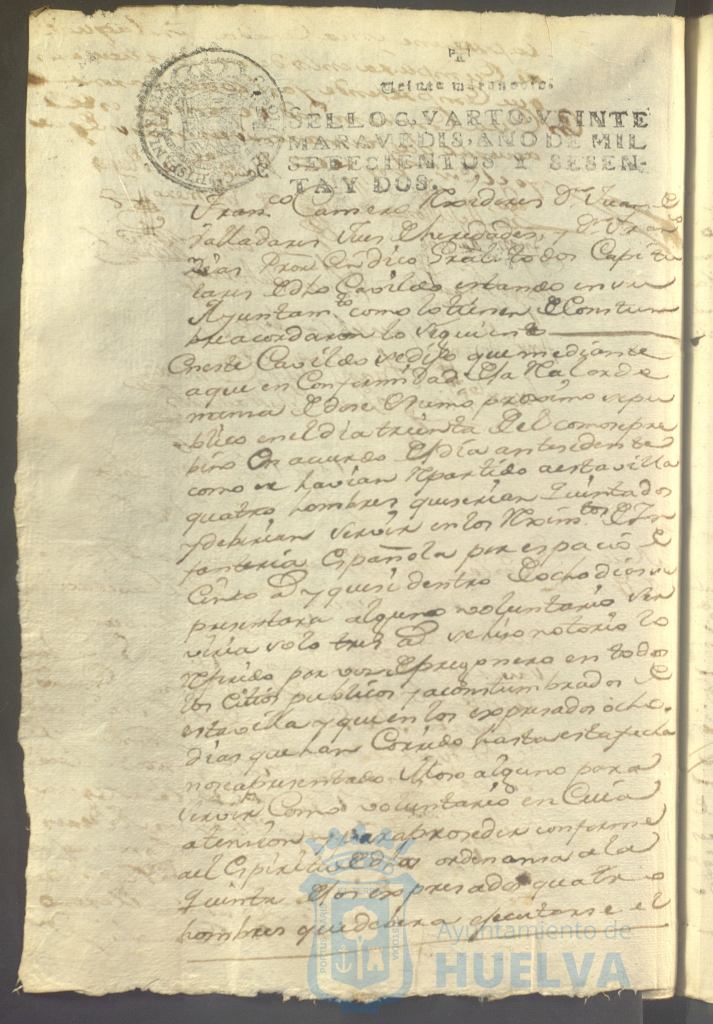 Veinte maravedis.
SELLO QVARTO, VEINTE
MARAVEDIS, AÑO DE MIL
SEPECIENTOS Y SESEN-
TA Y DOS.
Fran.co Camero Rexidores D.n Juan
Valladares Jues Eheredades, y D.n Fran
Dias Pror Sindico Gral todos Capitu
lares Edho Cavildo estando en su
Ayuntam.to como lo tienen E Costum
bre acordaron lo siguiente
En este Cavildo se dijo que mediante
a que en Conformidad E la Rl orde
nansa E dose Junio proximo se pu
blico en el dia treinta Del como se pre
bino En acuerdo E dia antesedente
como se havian Repartido a esta villa
quatro hombres que serian quintados
y deberian servir en los Rexim.tos E In
fanteria Española por espacio E
Cinco as y que si dentro E ocho dias se
presentara alguno voluntario ser
viria solo tres as se hiso notorio lo
referido por vos E pregonero en todos
los Citios publicos y acostumbrados E
esta villa y que en los expresados ocho
dias que han Corrido hasta esta fecha
no se a presentado Moso alguno para
servir Como voluntario en Cuia
atension y para proseder conforme
a el Espiritu E dha ordenansa a la
Quinta E los expresados quatro
hombres que debera ejecutarse el
Ayuntamiento de
HUELVA